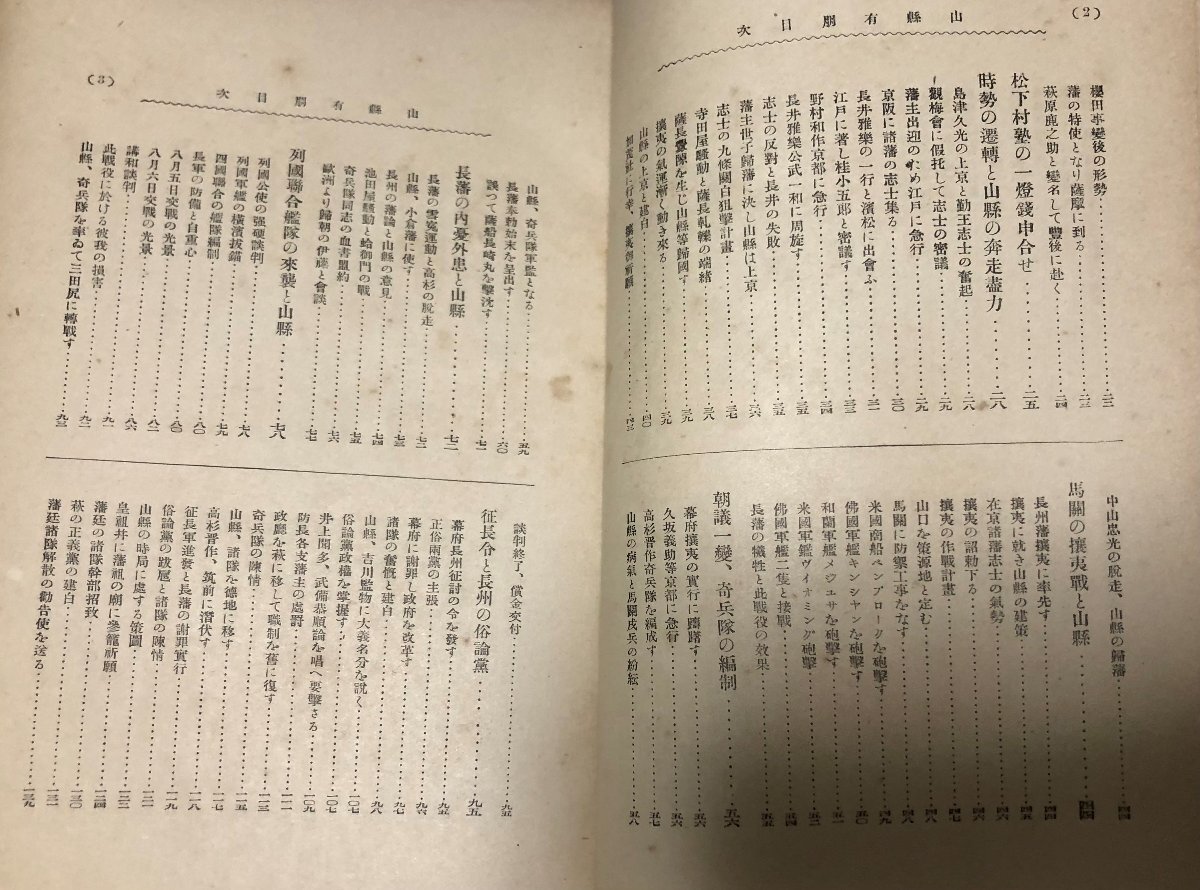 (2)
山縣有朋目次
櫻田事變後の形勢……二三
藩の特使となり薩摩に到る……二三
萩原鹿之助と變名して豐後に赴く……二四
松下村塾の一燈錢申合せ……二五
時勢の遷轉と山縣の奔走盡力……二八
島津久光の上京と勤王志士の奮起……二八
觀梅會に假托して志士の密議……二九
藩主出迎のため江戸に急行……二九
京阪に諸藩の志士集る……三〇
長井雅樂の一行と濱松に出會ふ……三一
江戸に著し桂小五郎と密議す……三三
野村和作京都に急行……三四
長井雅樂公武一和に周旋す……三五
志士の反對と長井の失敗……三五
藩主世子歸藩に決し山縣は上京……三六
志士の九條關白狙擊計畫……三七
寺田屋騷動と薩長軋轢の端緒……三八
薩長釁隙を生じ山縣等歸國す……三九
攘夷の氣運漸く動き來る……三九
山縣の上京と建白……四〇
中山忠光の脫走、山縣の歸藩……四四
馬關の攘夷戰と山縣……四四
長州藩攘夷に率先す……四四
攘夷に就き山縣の建策……四五
在京諸藩志士の氣勢……四六
攘夷の詔勅下る……四六
攘夷の作戰計畫……四七
山口を策源地と定む……四八
馬關に防禦工事をなす……四八
米國商船ペンブロークを砲擊す……四九
佛國軍艦キンシャンを砲擊す……五〇
和蘭軍艦メジュサを砲擊す……五一
米國軍艦ヴイオミング砲擊……五二
佛國軍艦二隻と接戰……五四
長藩の犧牲と此戰役の效果……五五
朝議一變、奇兵隊の編制……五六
幕府攘夷の實行に躊躇す……五六
久坂義助等京都に急行……五六
高杉晋作奇兵隊を編成す……五七
山縣の病氣と馬關戍兵の紛紜……五八
(3)
山縣有朋目次
山縣、奇兵隊軍監となる……五九
長藩奉勅始末を呈出す……六〇
誤つて薩船長崎丸を擊沈す……七一
長藩の内憂外患と山縣……七二
長藩の雪寃運動と高杉の脫走……七二
山縣、小倉藩に使す……七三
長州の藩論と山縣の意見……七四
池田屋騷動と蛤御門の戰……七五
奇兵隊同志の血書盟約……七六
歐洲より歸朝の伊藤と會談……七七
列國聯合艦隊の來襲と山縣……七八
列國公使の强硬談判……七八
列國軍艦の横濱拔錨……七九
四國聯合の艦隊編制……七九
長軍の防備と自重心……八〇
八月五日交戰の光景……八〇
八月六日交戰の光景……八二
講和談判……八六
此戰役に於ける彼我の損害……九一
山縣、奇兵隊を率ゐて三田尻に轉戰す……九三
談判終了、償金交付……九五
征長令と長州の俗論黨……九五
幕府長州征討の令を發す……九五
正俗兩黨の主張……九六
幕府に謝罪し政府を改革す……九六
諸隊の奮慨と建白……九七
山縣、吉川監物に大義名分を說く……九八
俗論黨政權を掌握す……一〇七
井上聞多、武備恭順論を唱へ要擊さる……一〇七
防長各支藩主の處置……一〇九
政廳を萩に移して職制を舊に復す……一一一
奇兵隊の陳情……一一三
山縣、諸隊を德地に移す……一一五
高杉晋作、筑前に潜伏す……一一七
征長軍進發と長藩の謝罪實行……一一八
俗論黨の跋扈と諸隊の陳情……一一九
山縣の時局に處する策圖……一二一
皇祖幷に藩祖の廟に參籠祈願……一二三
藩廷の諸隊幹部招致……一二四
萩の正義黨の建白……一三〇
藩廷諸隊解散の勸告使を送る……一三九